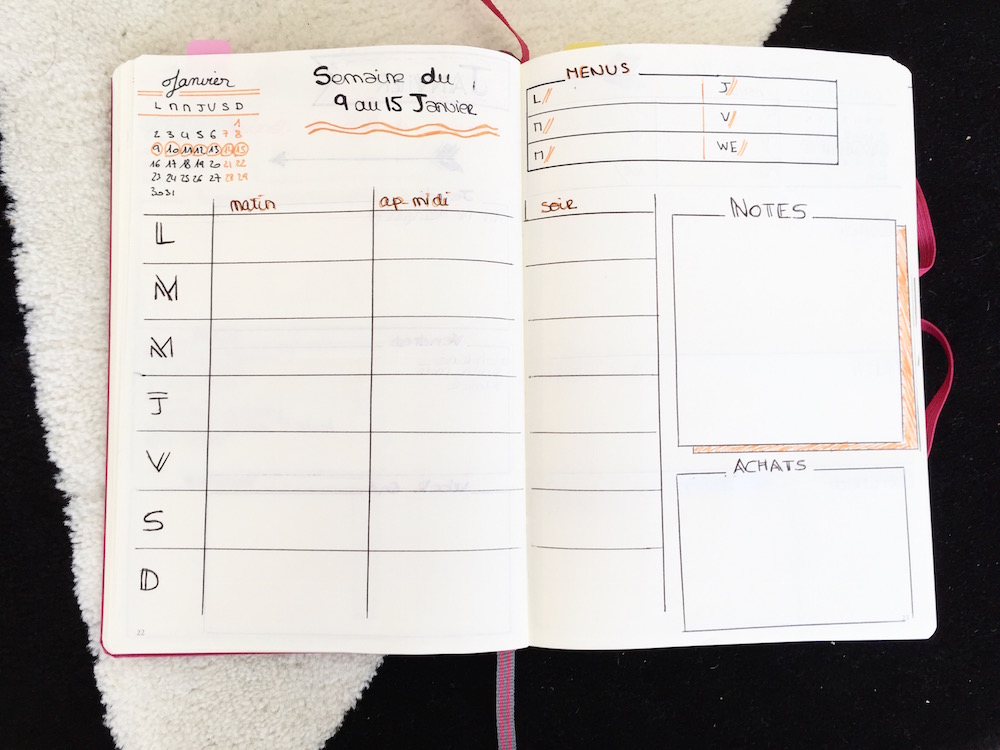 Janvier
L M M J V S D
1
2 3 4 5 6 7 8
9 10 11 12 13 14 15
16 17 18 19 20 21 22
23 24 25 26 27 28 29
30 31
Semaine du
9 au 15 Janvier
MENUS
L// J//
M// V//
M// WE//
matin ap-midi soir
L
M
M
J
V
S
D
NOTES
ACHATS
22